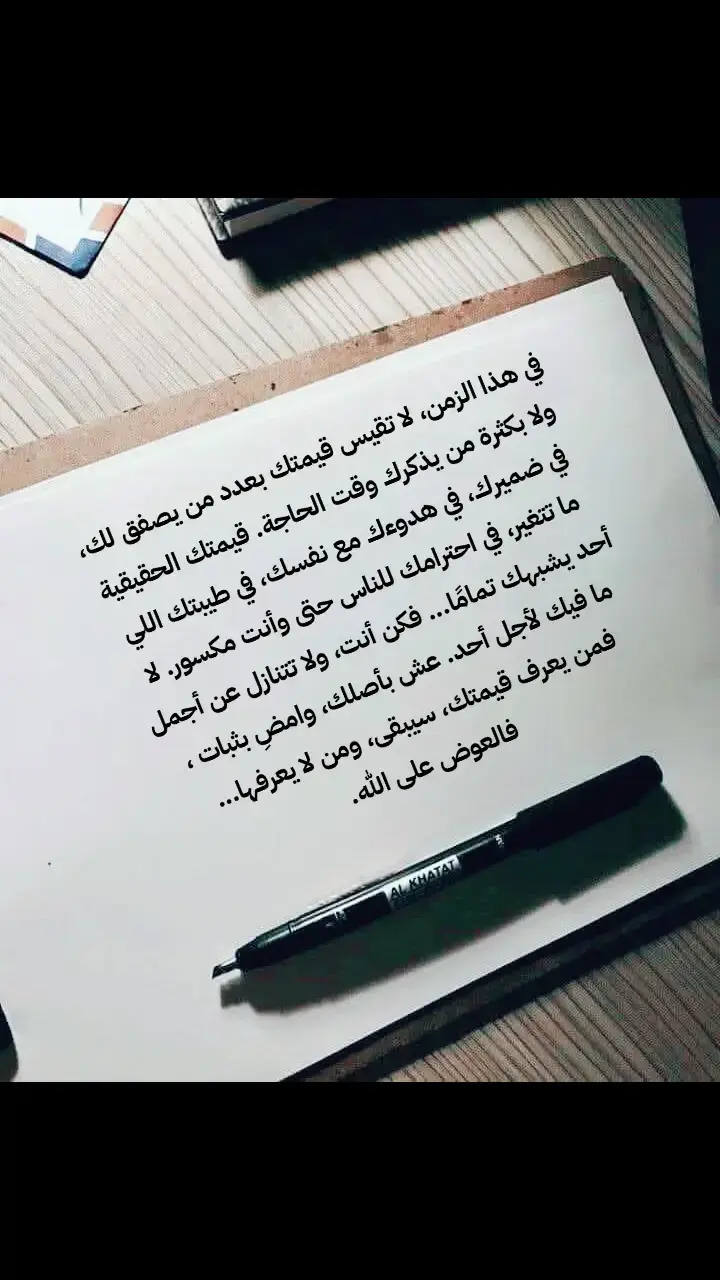 في هذا الزمن، لا تقيس قيمتك بعدد من يصفق لك،
ولا بكثرة من يذكرك وقت الحاجة. قيمتك الحقيقية
في ضميرك، في هدوءك مع نفسك، في طيبتك اللي
ما تتغير، في احترامك للناس حتى وأنت مكسور. لا
أحد يشبهك تمامًا... فكن أنت، ولا تتنازل عن أجمل
ما فيك لأجل أحد. عش بأصلك، وامضِ بثبات ،
فمن يعرف قيمتك، سيبقى، ومن لا يعرفها...
فالعوض على الله.
AL KHATAT